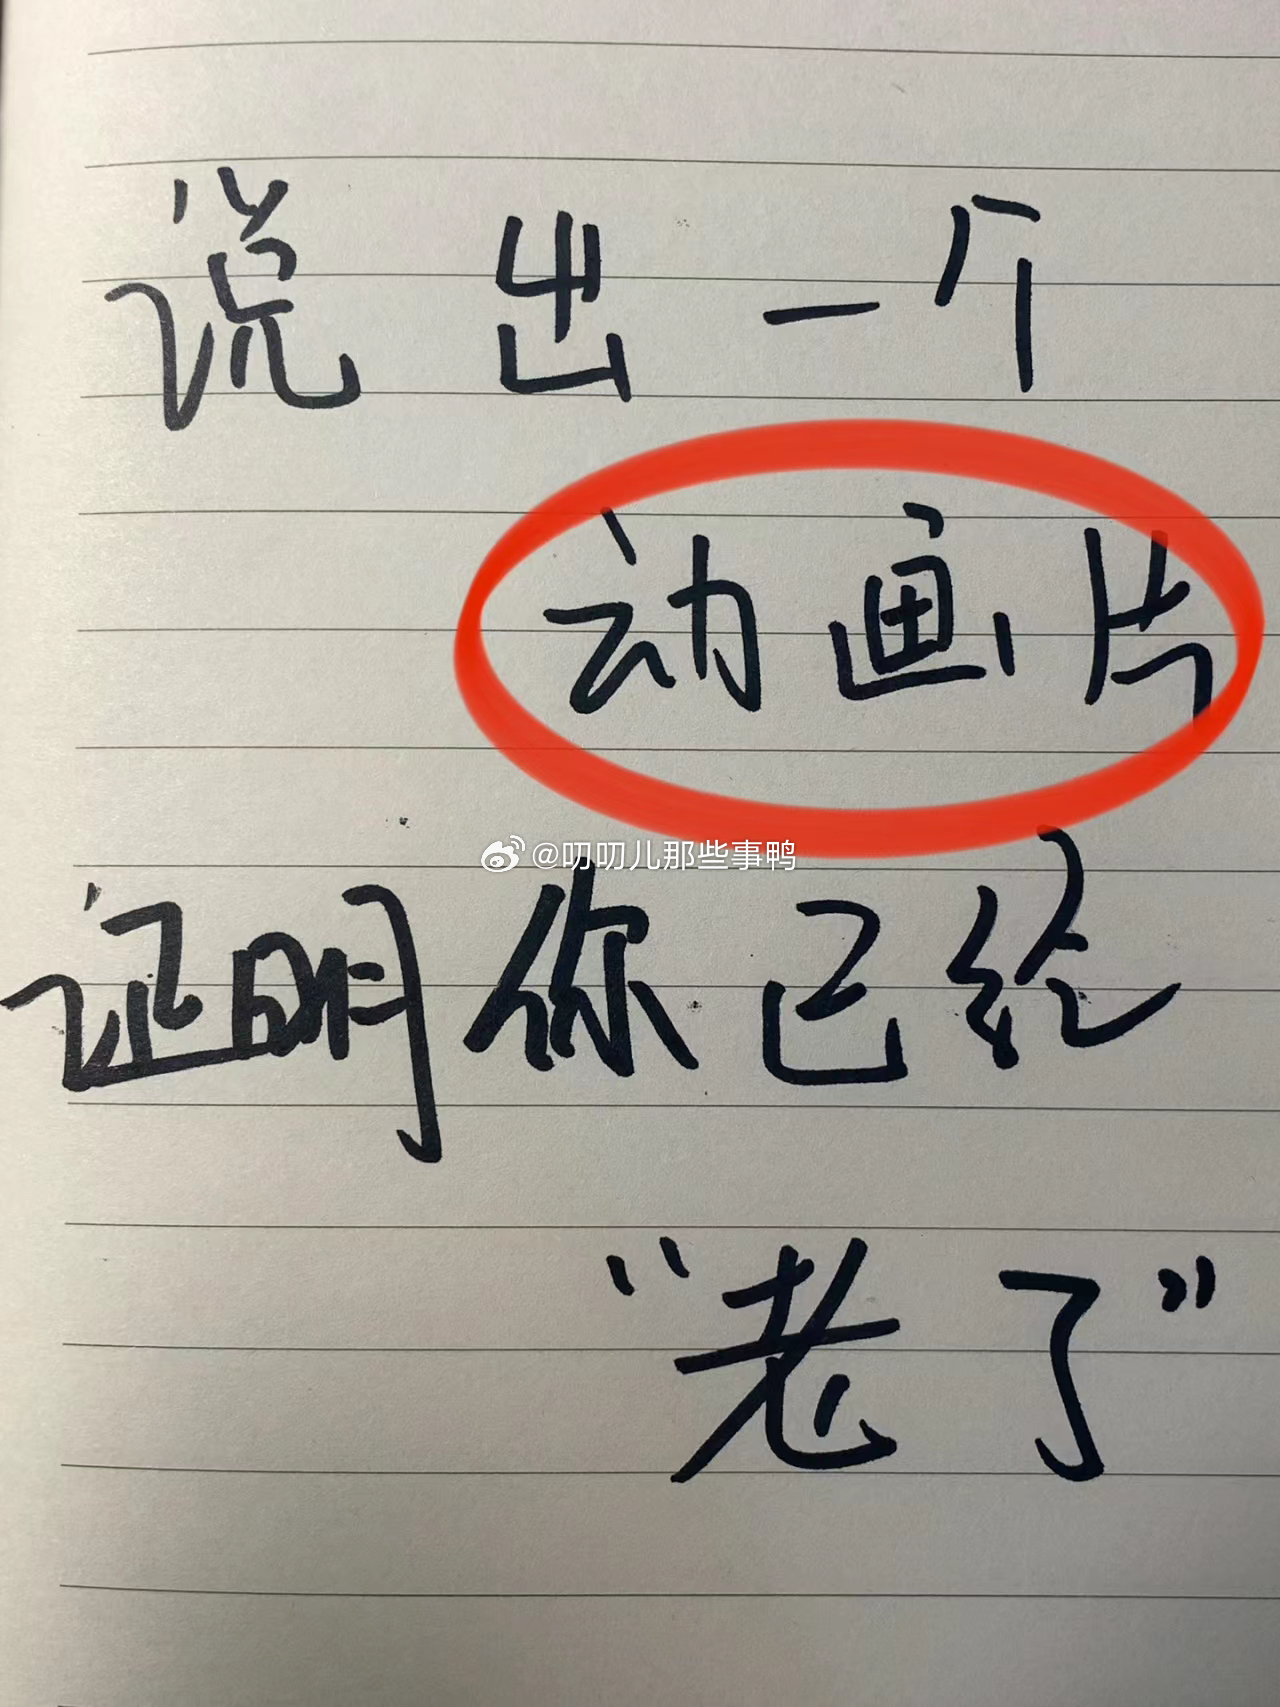 说出一个
动画片
@叨叨儿那些事鸭
证明你已经
“老了”